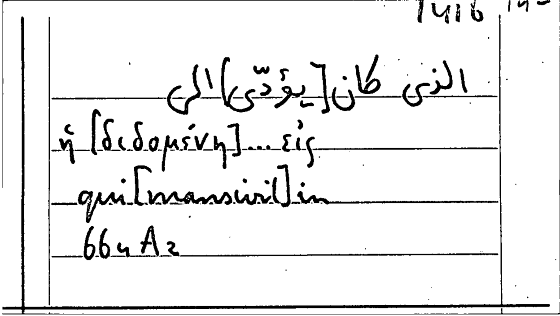 الذى كان [يؤدّى] الى
ἡ [δεδομένη] ... εἰς
qui [mansivit] in
664 A2